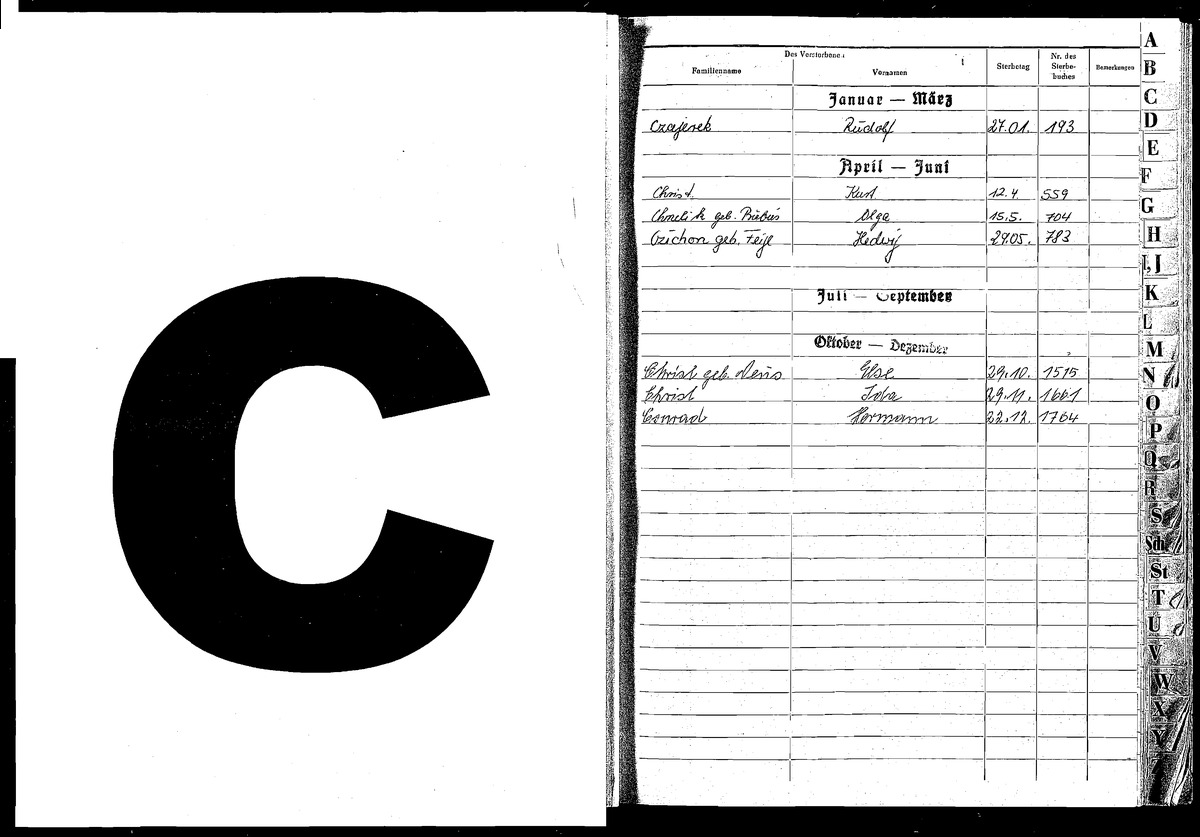 C
Des Verstorbenen
Familienname Vornamen Sterbetag Nr. des Sterbe-buches Bemerkungen
Januar — März
Czajerek Rudolf 27.01. 193
April — Juni
Christ Kurt 12.4. 559
geb. Olga 15.5. 704
Czichon geb. Feige Hedwig 29.05. 783
Juli — September
Oktober — Dezember
Christ geb. Else 29.10. 1515
Christ 29.11. 1661
Conrad Hermann 22.12. 1764
A
B
C
D
E
F
G
H
I, J
K
L
M
N
O
P
Q
R
S
Sch
St
T
U
V
W
X
Y